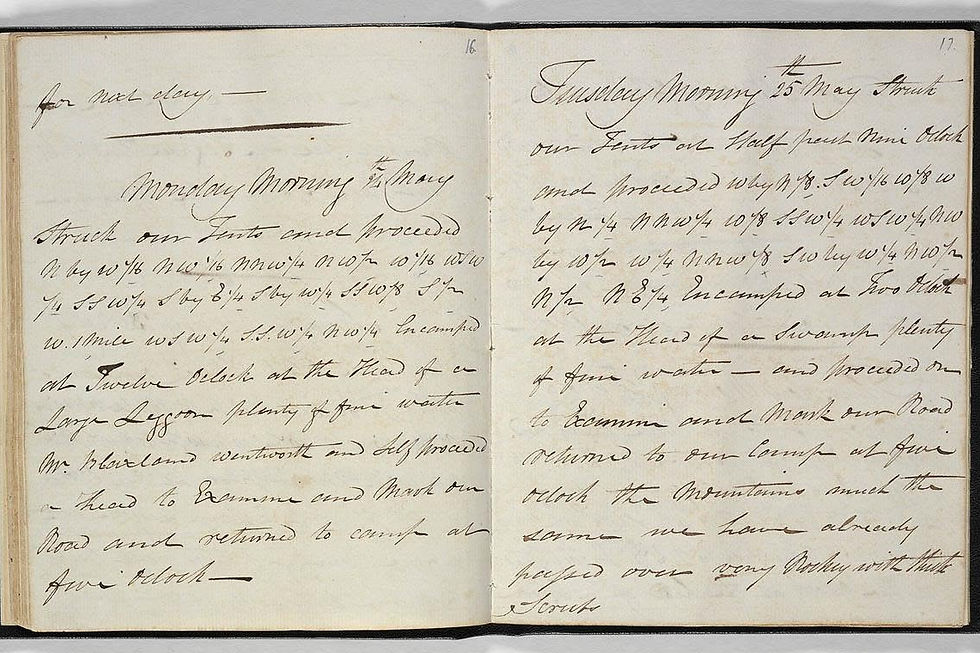 16
for next day —
Monday Morning 24th May
Struck our Tents and proceeded
N by W 1/16 NW 1/16 NNW 1/4 NW 1/2 W 1/16 WSW
1/4 SSW 1/4 S by E 1/4 S by W 1/4 SSW 1/8 S 1/2
W. 1 Mile WSW 1/4 S.S.W 1/4 NW 1/4 Encamped
at Twelve Oclock at the Head of a
Large Leggoon plenty of fine water
Mr. Blaxland wentworth and Self proceeded
a head to Examine and Mark our
Road and returned to camp at
five Oclock —
17.
Tuesday Morning 25th May Struck
our Tents at Half past Nine Oclock
and proceeded W by N 1/8. SW 1/16 W 1/8 W
by N 1/4 NNW 1/4 W 1/8 SSW 1/4 WSW 1/4 NW
by W 1/2 W 1/4 NNW 1/8 SW by W 1/4 NW 1/2
N 1/2 NE 1/4 Encamped at Two Oclock
at the Head of a Swamp plenty
of fine water — and proceeded on
to Examine and Mark our Road
returned to our Camp at five
oclock the Mountains much the
same we have already
passed over very Rockey with thick
Scrubs